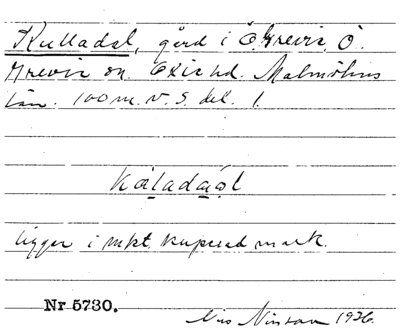 Kulladal, gård i Ö. Grevie, Ö.
Grevie sn. Oxie hd. Malmöhus
län. 100 m. v. S. del. 1.
kàladáəl
ligger i mkt kuperad mark.
Nr 5730.
Nils 1936.